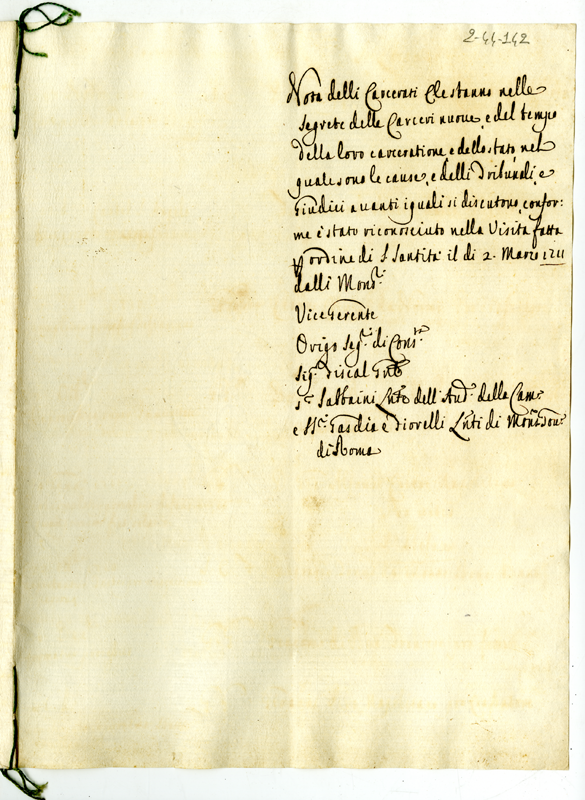 2-44-142
Nota delli Carcerati che stanno nelle
segrete delle Carceri nuove, e del tempo
della loro carceratione, e dello stato, nel
quale sono le cause, e delli Tribunali, e
Giudici avanti i quali si discutono, confor:
me è stato riconosciuto nella Visita fatta
p ordine di S. Santità il di 2. Marzo 1711
dalli Mons.ri
Vice Gerente
Origo Seg.rio di Cons.ta
Sig.r Fiscal Gnle
S.r Sabbaini Lnte dell'Aud.r della Cam.ra
e SS.ri Gasdia e Fiorelli Lnti di Mons.r Gov.re
di Roma